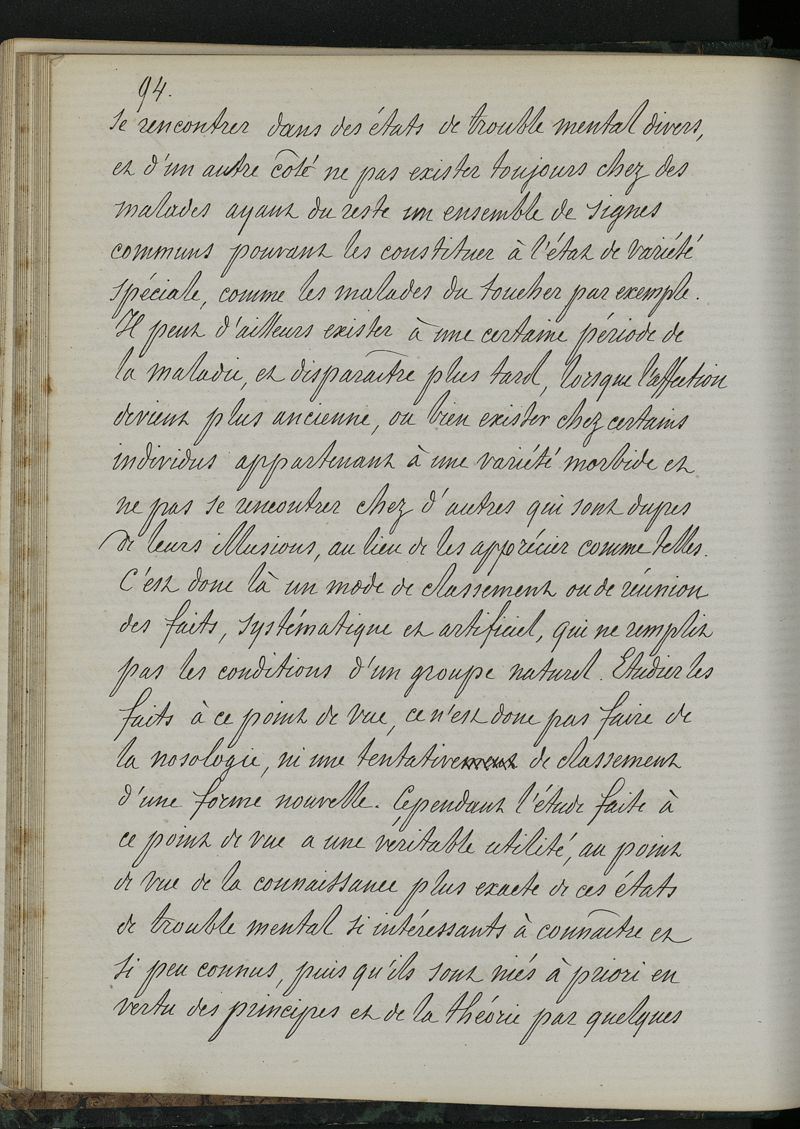 94.
se rencontrer dans des états de trouble mental divers,
et d'un autre côté ne pas exister toujours chez des
malades ayant du reste un ensemble de signes
communs pouvant les constituer à l'état de variété
spéciale, comme les malades du toucher par exemple.
Il peut d'ailleurs exister à une certaine période de
la maladie, et disparaître plus tard, lorsque l'affection
devient plus ancienne, ou bien exister chez certains
individus appartenant à une variété morbide et
ne pas se rencontrer chez d'autres qui sont dupes
de leurs illusions, au lieu de les apprécier comme telles.
C'est donc là un mode de classement ou de réunion
des faits, systématique et artificiel, qui ne remplit
pas les conditions d'un groupe naturel. Etudier les
faits à ce point de vue, ce n'est donc pas faire de
la nosologie, ni une tentative de classement
d'une forme nouvelle. Cependant l'étude faite à
ce point de vue a une veritable utilité, au point
de vue de la connaissance plus exacte de ces états
de trouble mental si intéressants à connaître et
si peu connus, puis qu'ils sont niés à priori en
vertu des principes et de la théorie par quelques